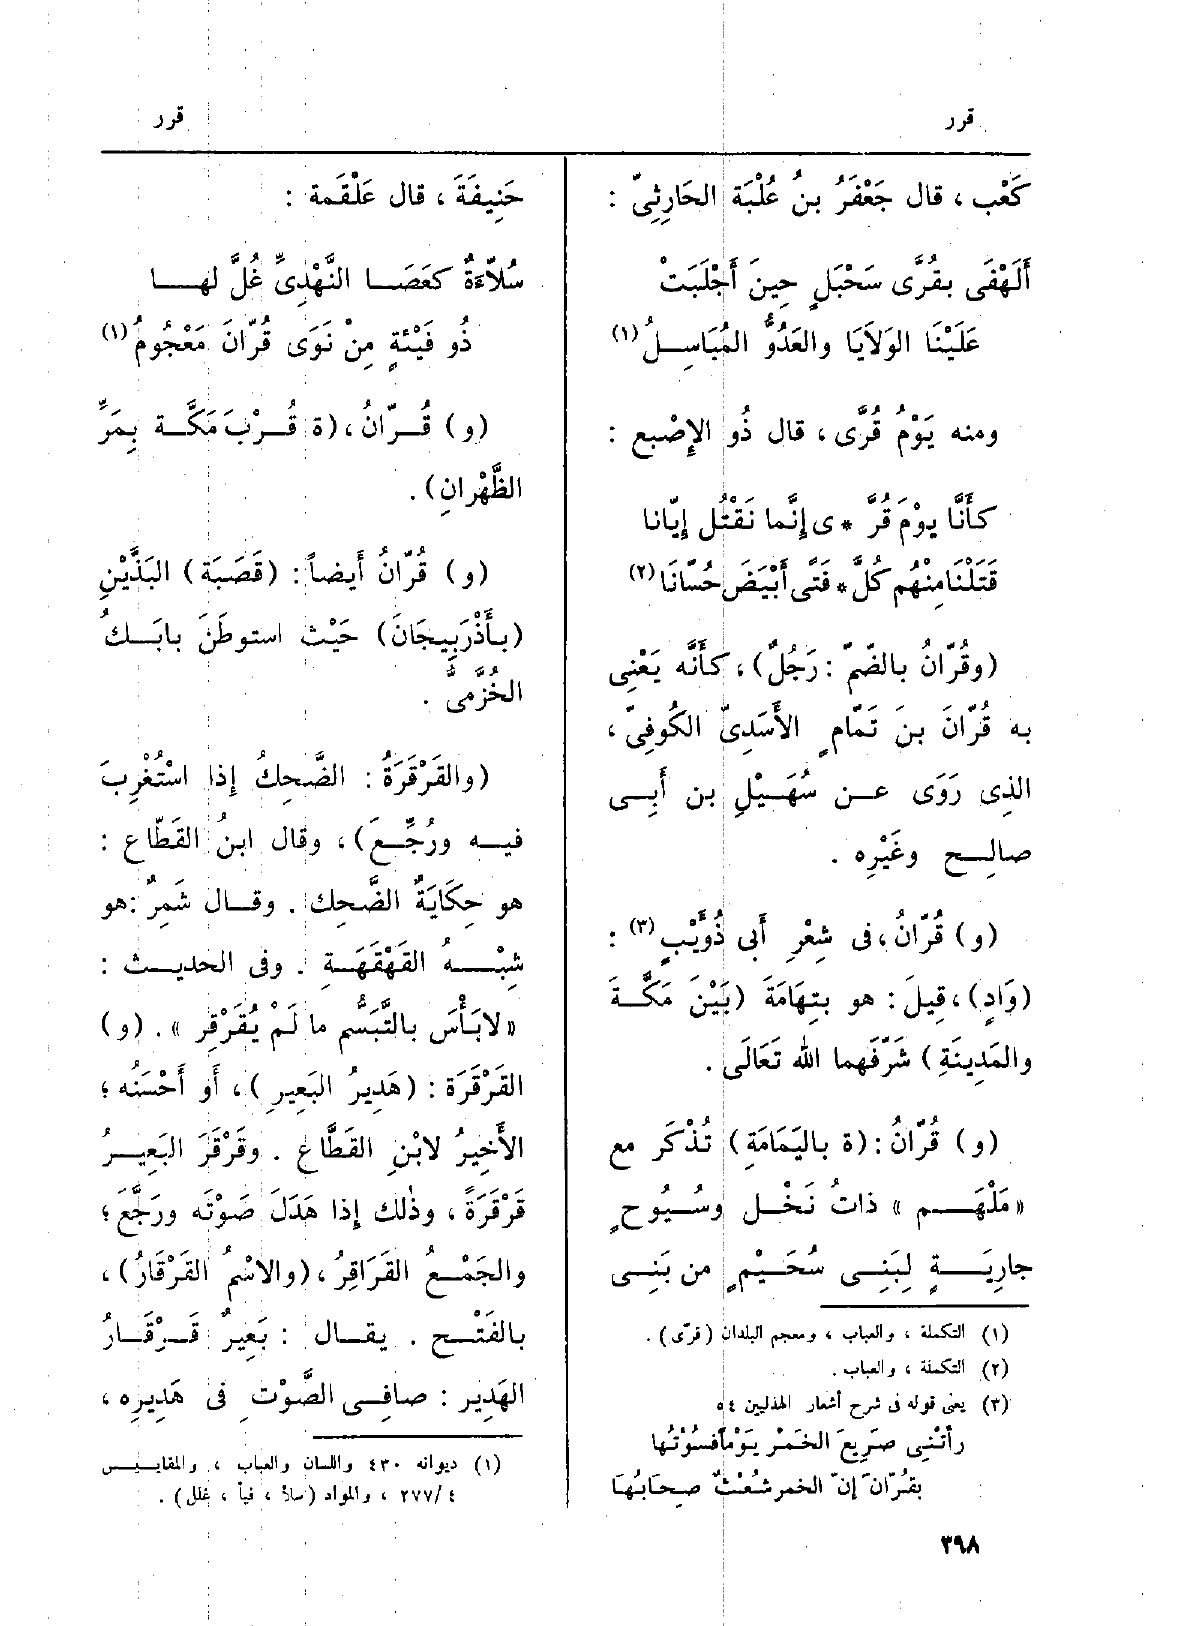 قرر
قرر
كَعْب ، قال جَعْفَرُ بنُ عُلْبَة الحَارِثِىّ :
أَلَهْفَى بقُرَّى سَحْبَلٍ حِينَ أَجْلَبَتْ
عَلَيْنَا الوَلاَيَا والعَدُوُّ المُبَاسِلُ (١)
ومنه يَوْمُ قُرَّى ، قال ذُو الإِصْبع :
كأَنَّا يوْمَ قُرَّ * ى إِنَّما نَقْتُل إِيّانا
قَتَلْنَا مِنْهُم كُلَّ * فَتًى أَبْيَضَ حُسّانَا (٢)
(وقُرّانُ بالضّمّ : رَجُلٌ) ، كأَنَّه يَعْنِى
به قُرّانَ بنَ تَمّامٍ الأَسَدِىّ الكُوفِىّ ،
الذِى رَوَى عــن سُهَيْلِ بن أَبِــى
صالِــح وغَيْرِه .
(و) قُرّانُ ، فى شِعْرِ أَبى ذُوَيْبٍ (٣) :
(وَادٍ) ، قِيلَ : هو بتِهَامَةَ (بَيْنَ مَكَّــةَ
والمَدِينَةِ) شَرَّفَهما الله تَعَالَى .
(و) قُرّانُ : (ة باليَمَامَةِ) تُذْكَر مع
« مَلْهَــم » ذاتُ نَخْل وسُــيُوحٍ
جارِيَــةٍ لِبَنِــى سُحَيْمٍ من بَنِــى
(١) التكملة ، والعباب ، ومعجم البلدان (قرّى) .
(٢) التكملة ، والعباب .
(٣) يعنى قوله فى شرح أشعار الهذليين ٥٤
رأتْنِى صَرِيعَ الخَمْرِ يَوْماً فَسُوْتُها
بقُرّانَ إنّ الخمر شُعْثٌ صِحَابُهَا
حَنِيفَةَ ، قال عَلْقَمة :
سُلاَّءَةٌ كعَصَــا النَّهْدِىِّ غُلَّ لهــا
ذُو فَيْئَةٍ مِنْ نَوَى قُرّانَ مَعْجُومُ (١)
(و) قُــرّانُ ، (ة قُــرْبَ مَكَّــة بِمَرِّ
الظَّهْرانِ) .
(و) قُرّانُ أَيضاً : (قَصَبَة) البَذَّيْنِ
(بــأَذْرَبِيجَانَ) حَيْث استوطَنَ بابَــكُ
الخُرَّمىُّ .
(والقَرْقَرَةُ : الضَّحِكُ إِذا اسْتُغْرِبَ
فيــه ورُجِّــعَ) ، وقال ابنُ القَطّاع :
هو حِكَايَةُ الضَّحِك . وقــال شَمِرٌ : هو
شِبْــهُ القَهْقَهَــةِ . وفى الحديــث :
« لا بَأْسَ بالتَّبَسُّم ما لَمْ يُقَرْقِر » . (و)
القَرْقَرَة : (هَدِيرُ البَعِيرِ) ، أَو أَحْسَنُه ؛
الأَخِيرُ لابْنِ القَطَّاع . وقَرْقَرَ البَعِيــرُ
قَرْقَرَةً ، وذٰلك إِذا هَدَلَ صَوْتَه ورَجَّعَ ؛
والجَمْــعُ القَرَاقِرُ ، (والاسْمُ القَرْقَارُ) ،
بالفَتْــح . يقــال : بَعِيرٌ قَــرْقَــارُ
الهَدِيرِ : صافِــى الصَّوْتِ فى هَدِيرِه ،
(١) ديوانه ٤٣٠ واللسان والعباب ، والمقاييــس
٢٧٧/٤ ، والمواد (سلأ ، فيأ ، غلل) .
٣٩٨